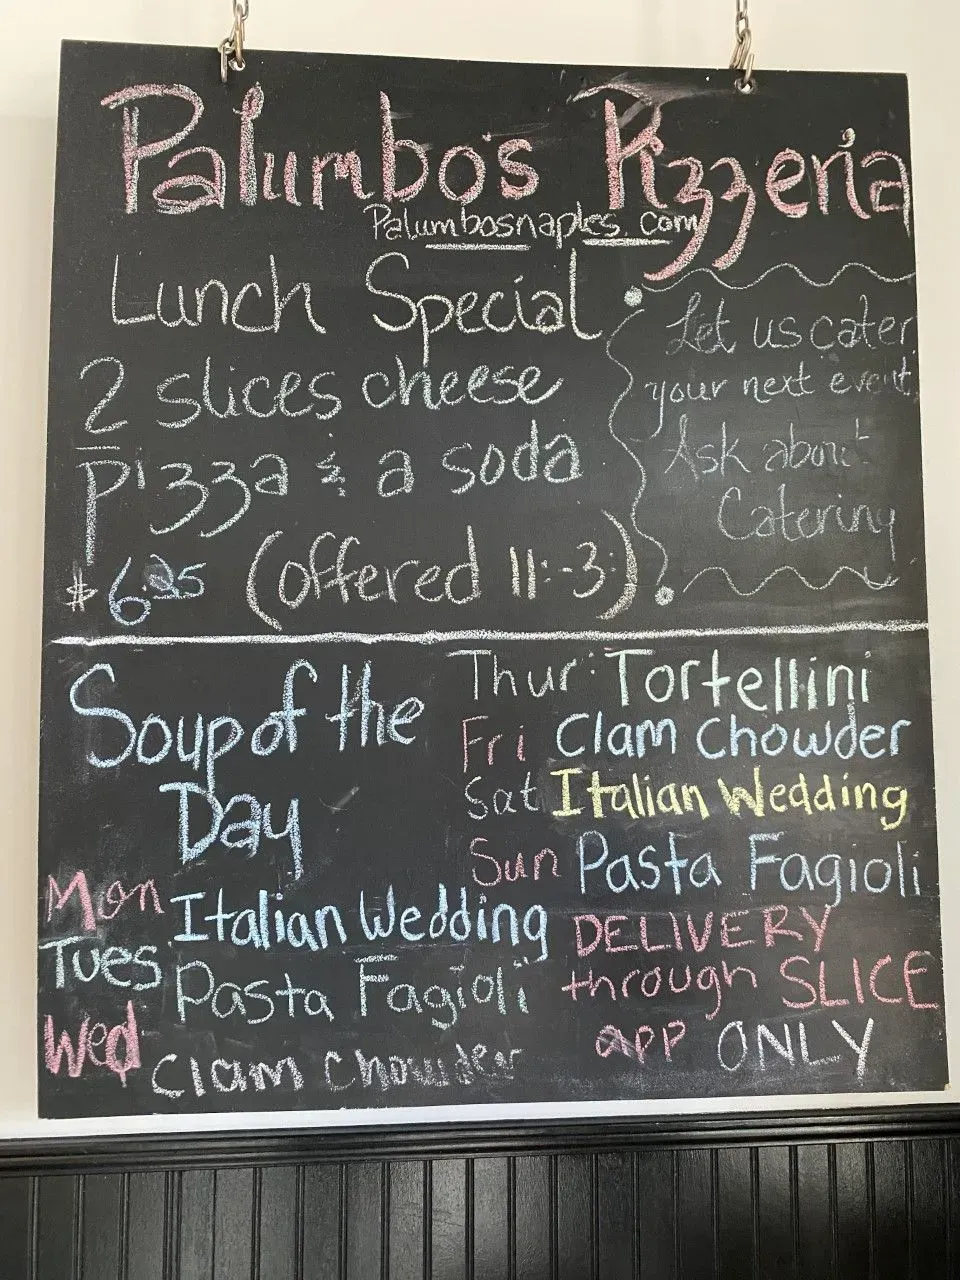 Palumbo's Pizzeria
Palumbosnaples.com
Lunch Special
2 slices cheese
pizza & a soda
$6.25 (offered 11:-3:)
Let us cater
your next event.
Ask about
Catering
Soup of the
Day
Mon Italian Wedding
Tues Pasta Fagioli
Wed Clam Chowder
Thur: Tortellini
Fri Clam Chowder
Sat Italian Wedding
Sun Pasta Fagioli
DELIVERY
through SLICE
app ONLY